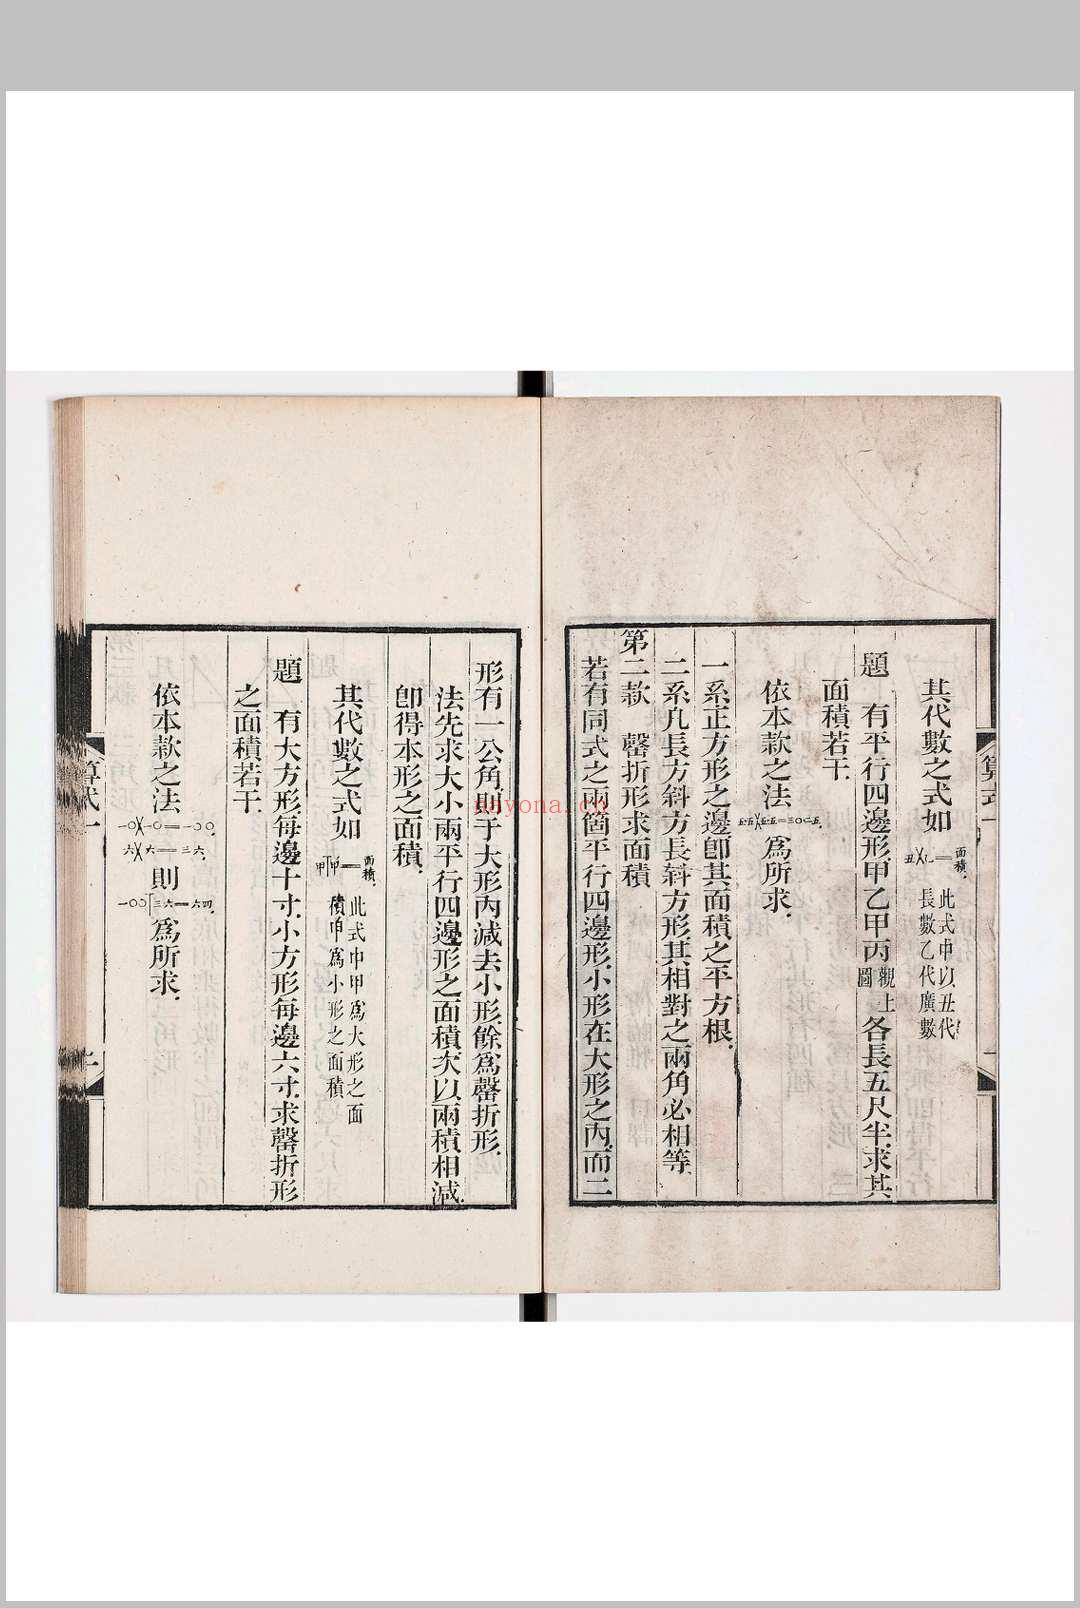 其代數之式如 丑╳乙═面積 此式中以丑代長數乙代廣數
題 有平行四邊形甲乙甲丙觀上圖各長五尺半求其
面積若干
依本款之法 五·五╳五·五═三〇·二五 爲所求
一系正方形之邊卽其面積之平方根
二系凡長方斜方長斜方形其相對之兩角必相等
第二款 罄折形求面積
若有同式之兩箇平行四邊形小形在大形之內而二
形有一公角則于大形內減去小形餘爲罄折形
法先求大小兩平行四邊形之面積次以兩積相減
卽得本形之面積
其代數之式如 甲丅呷═面積 此式中甲爲大形之面積呷爲小形之面積
題 有大方形每邊十寸小方形每邊六寸求罄折形
之面積若干
依本款之法 一〇╳一〇═一〇〇 六╳六═三六 則 一〇〇丅三六═六四 爲所求
nayona.cn